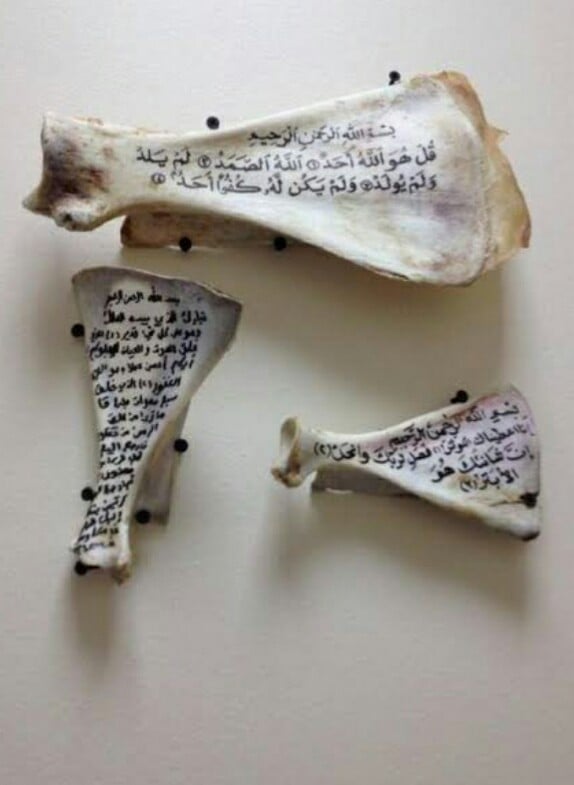 بسم الله الرحمن الرحيم
قُلْ هُوَ ٱللَّهُ أَحَدٌ ١ ٱللَّهُ ٱلصَّمَدُ ٢ لَمْ يَلِدْ
وَلَمْ يُولَدْ ٣ وَلَمْ يَكُن لَّهُۥ كُفُوًا أَحَدٌۢ ٤
بسم الله الرحمن الرحيم
تبارك الذي بيده الملك
وهو على كل شي قدير (١) الذي
خلق الموت والحياة ليبلوكم
أيكم أحسن عملا وهو العزيز
الغفور (٢) الذي خلق
سبع سموات طباقا
ما ترى في خلق
الرحمن من تفاوت
بسم الله الرحمن الرحيم
إنا اعطيناك كوثر (١) فصل لربك وانحر (٢)
إن شانئك هو
الأبتر (٣)